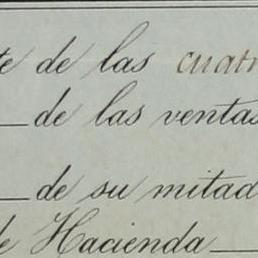 te de las cuatr
de las ventas
de su mitad
de Hacienda